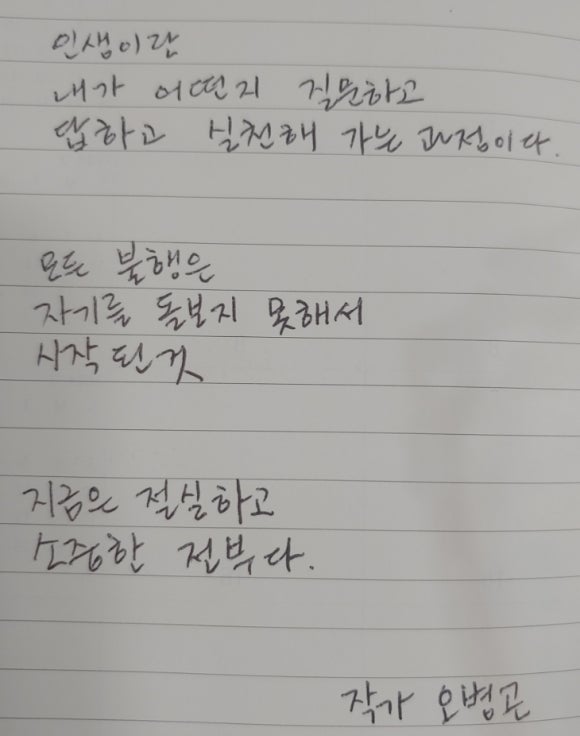 인생이란
내가 어떤지 질문하고
답하고 실천해 가는 과정이다.
모든 불행은
자기를 돌보지 못해서
시작 된것
지금은 절실하고
소중한 전부다.
작가 오범곤